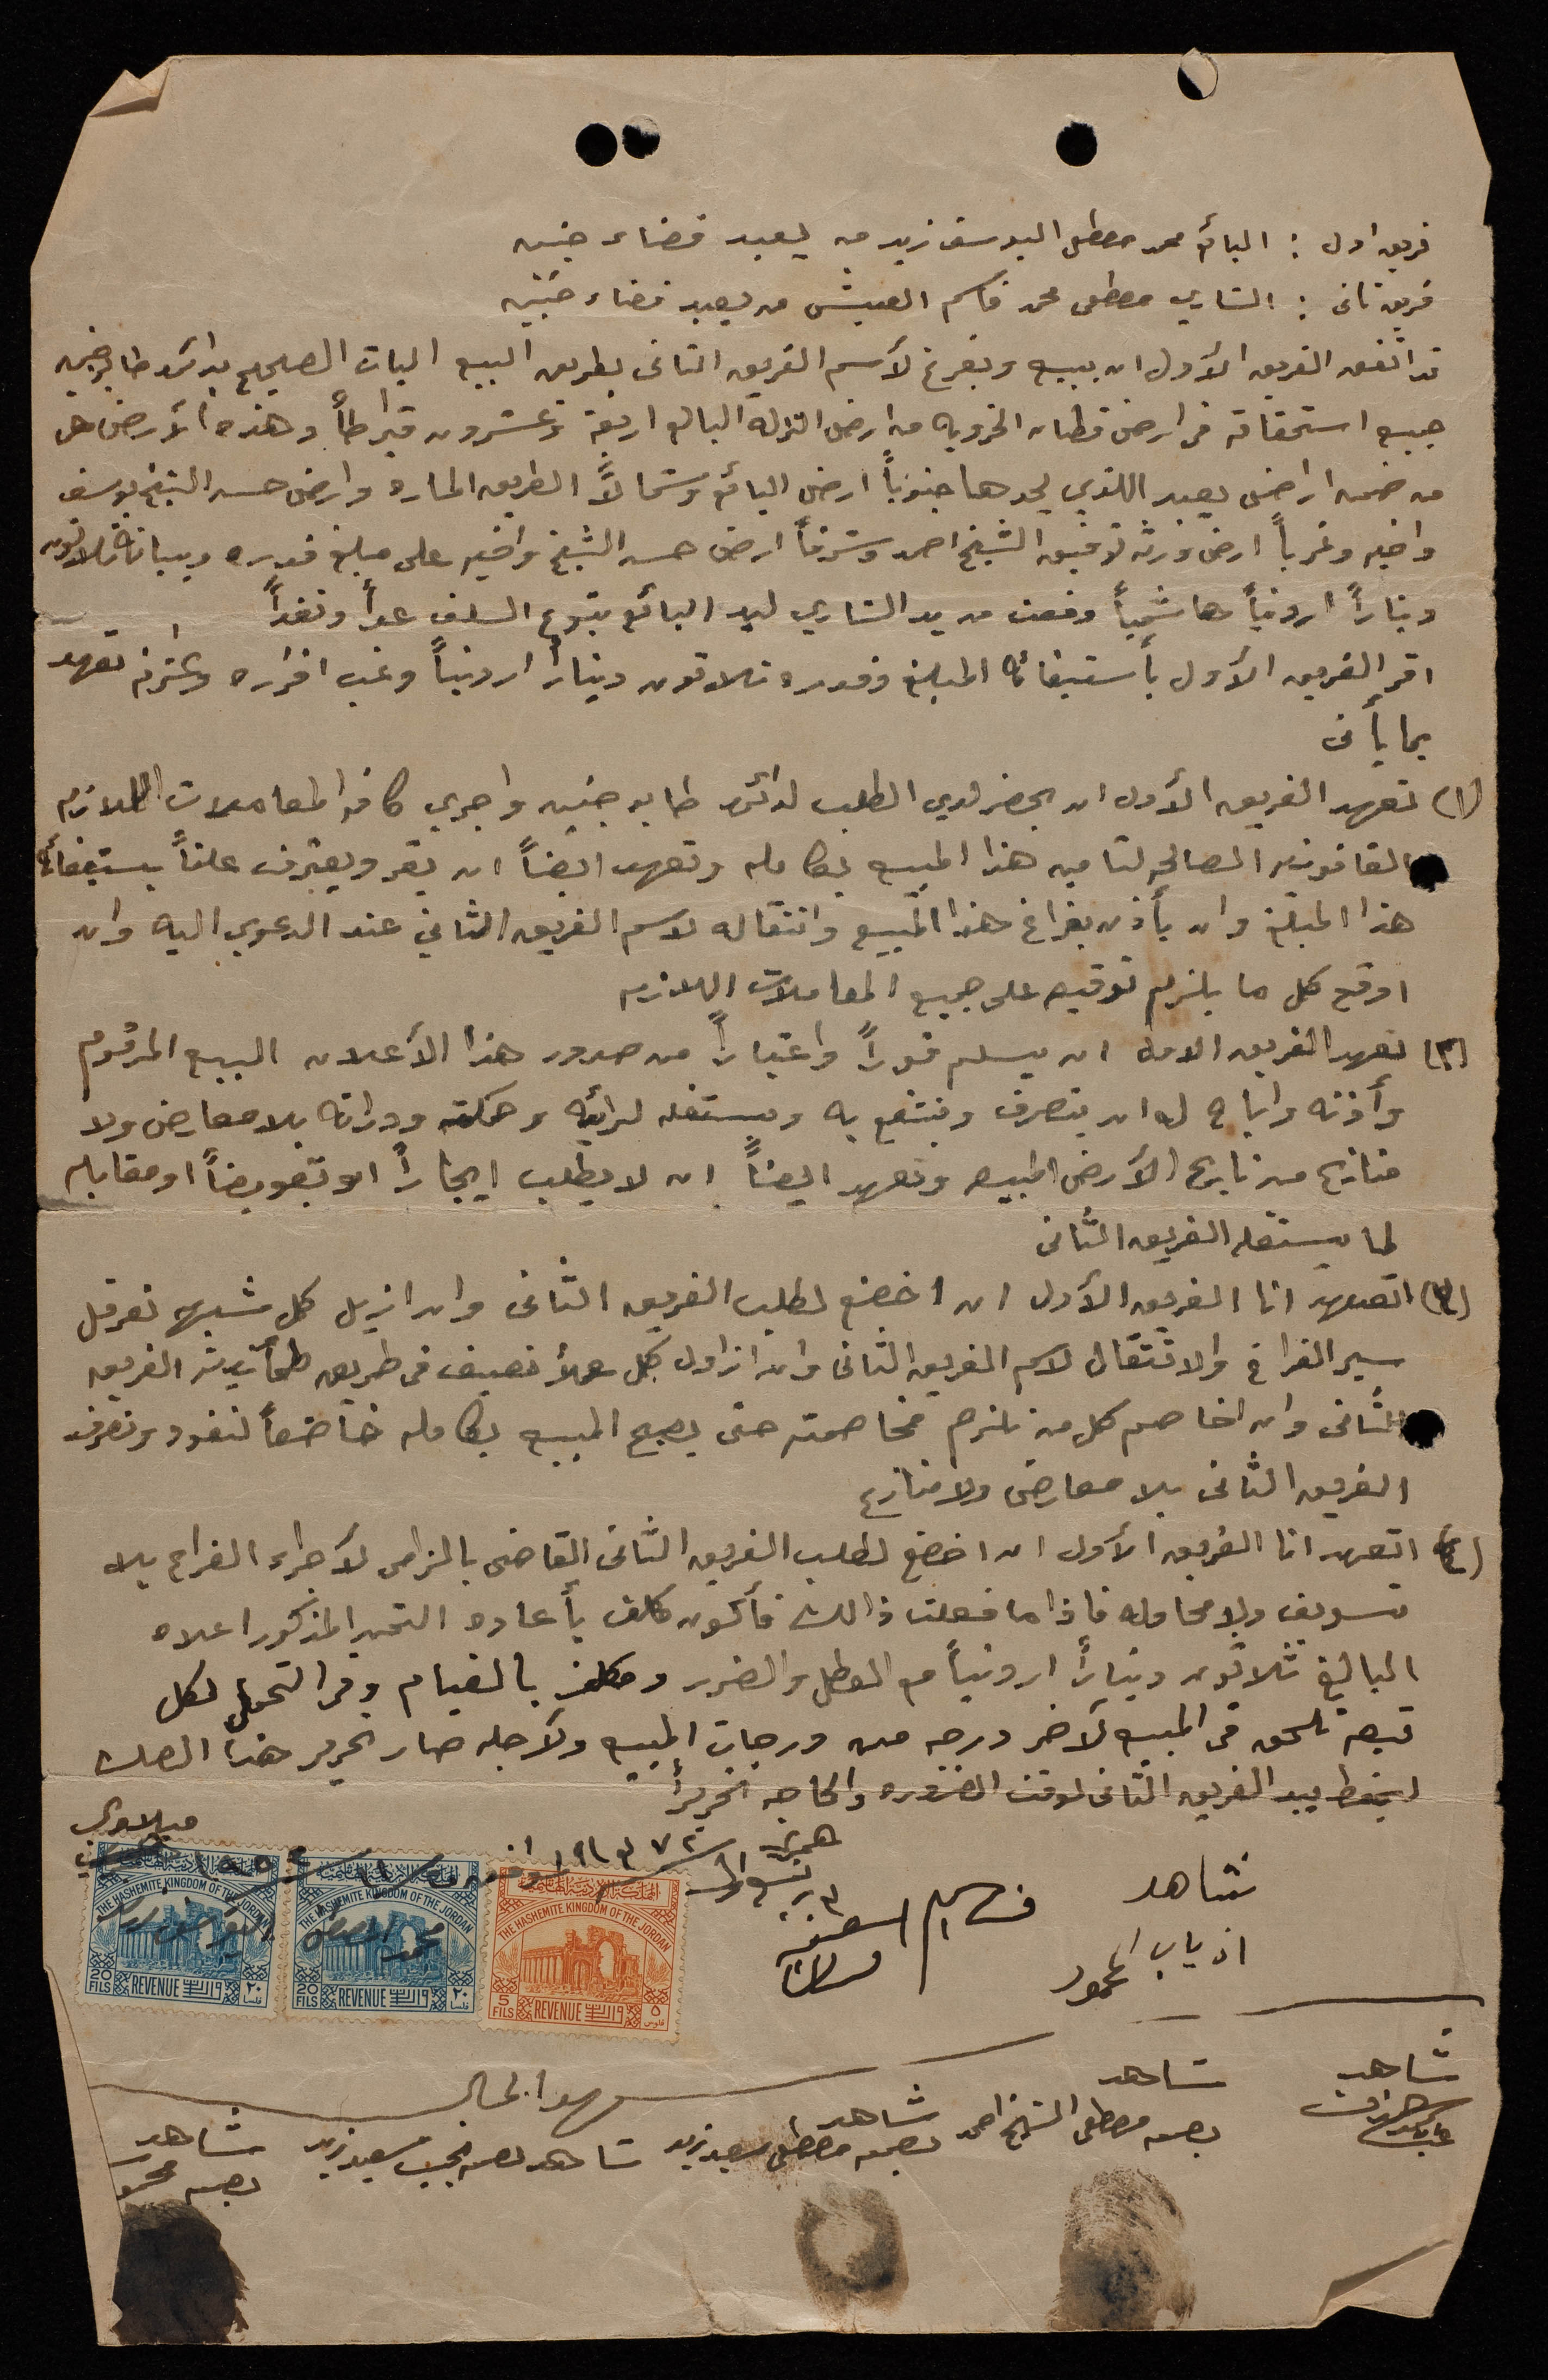 فريق اول : البائع محمد مصطفى اليوسف زيد من يعبد قضاء جنين
فريق ثاني : الشاري مصطفى محمد قاسم من يعبد قضاء جنين
قد اتفق الفريق الأول ان يبيع ويفرغ لأسم الفريق الثاني بطريق البيع البات الصحيح بدائرة طابو جنين
جميع استحقاقه في ارض قطان الخروبه من ارض النزله البالغ اربعة وعشرون قيراطاً وهذه الأرض هي
من ضمن اراضي يعبد اللذي يحدها جنوباً ارض البائع وشمالاً الطريق الماره وارض حسن الشيخ يوسف
واخيه وغرباً ارض ورثة توفيق الشيخ احمد وشرقاً ارض حسن الشيخ واخيه على مبلغ قدره ثلاثون
ديناراً اردنياً هاشمياً دفعت من يد الشاري ليد البائع بتنوع السلف عداً ونقداً
اقر الفريق الأول بأستيفائه المبلغ وقدره ثلاثون ديناراً اردنياً وغب اقراره واعترافه تعهد
بما يأتي
(١) تعهد الفريق الأول ان يحضر لدي الطلب لدائرة طابو جنين واجري كافة المعاملات اللازمه
القانونيه الصالحه لتامين هذا المبيع بكامله وتعهد ايضاً ان يقر ويعترف علناً بستيفائه
هذا المبلغ وان يأذن بفراغ هذا المبيع وانتقاله لاسم الفريق الثاني عند الدعوي اليه وان
اوقع كل ما يلزم توقيعه على جميع المعاملات اللازمه
(٢) تعهد الفريق الاول ان يسلم فوراً واعتباراً من صدور هذا الأعلان البيع المرقوم
وأذنه واباح له ان يتصرف وينتفع به ويستغله لرائيه وحكمته ودرانه بلا معارض ولا
منازع من تاريخ الأرض المبيعه وتعهد ايضاً ان لا يطلب ايجاراً او تعويضاً او مقابله
لما يستغله الفريق الثاني
(٣) اتعهد انا الفريق الأول ان اخضع لطلب الفريق الثاني وان ازيل كل شبهه تعرقل
سير الفراغ والانتقال لاسم الفريق الثاني وان ازاول كل عملاً في طريق طمأنينة الفريق
الثاني وان اخاصم كل من تلزم مخاصمته حتى يصبح المبيع بكامله خاضعاً لنفوذ وتصرف
الفريق الثاني بلا معارض ولا منازع
(٤) اتعهد انا الفريق الأول ان اخضع لطلب الفريق الثاني القاضي بالزامي لأجراء الفراغ بلا
تسويف ولا محاوله فاذا ما فعلت ذالك فأكون مكلف بأعادة الثمن المذكور اعلاه
البالغ ثلاثون ديناراً اردنياً مع العطل والضرر ومكلف بالقيام وفي التحمل لكل
تبعه تلحق في المبيع لآخر درجه من درجات المبيع ولأجله صار تحرير هذا الصك
ليحفظ بيد الفريق الثاني لوقت الضروره والحاجه تحريراً
ميلادي
هجري
شاهد
اذياب المحمود
قاسم
محمد المصطفى
اليوسف زيد
THE HASHEMITE KINGDOM OF THE JORDAN
20 FILS REVENUE ٢٠ فلسا
THE HASHEMITE KINGDOM OF THE JORDAN
20 FILS REVENUE ٢٠ فلسا
المملكة الاردنية الهاشمية
THE HASHEMITE KINGDOM OF THE JORDAN
5 FILS REVENUE ٥ فلوس
شهود الحال
شاهد
شاهد
بصمة مصطفى الشيخ احمد
شاهد
بصمة مصطفى سعيد زيد
شاهد بصمة نجيب سعيد زيد
شاهد
بصمة محمود